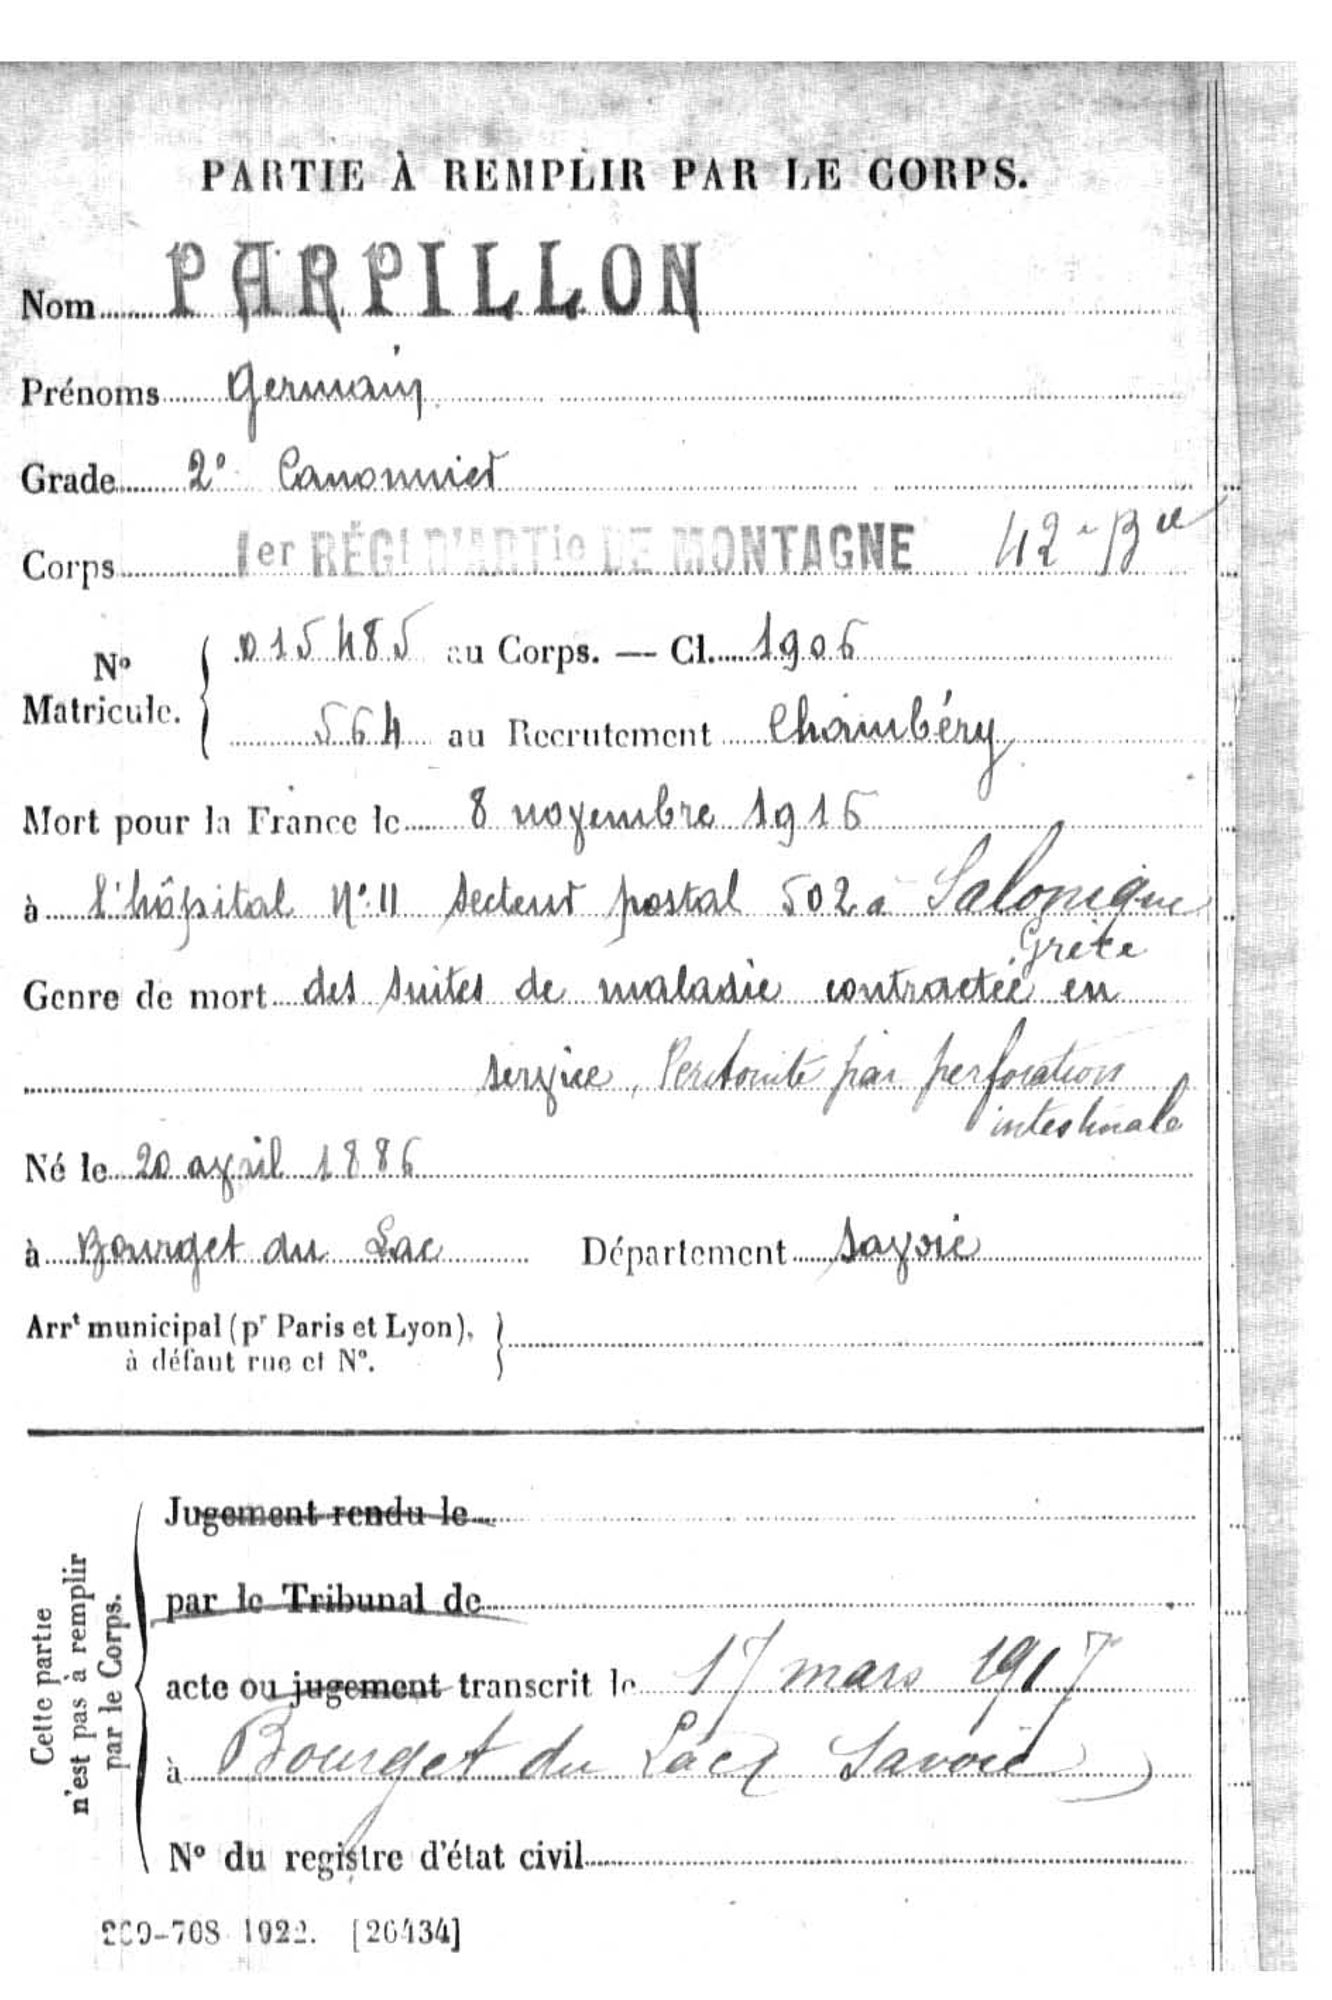 PARTIE À REMPLIR PAR LE CORPS.
Nom PARPILLON
Prénoms Germain
Grade 2e Canonnier
Corps 1er RÉGt D'ARTie DE MONTAGNE 42e Bie
No Matricule. 015485 au Corps. — Cl. 1906
564 au Recrutement Chambéry
Mort pour la France le 8 novembre 1916
à l'hôpital No 11 secteur postal 502 à Salonique
Grèce
Genre de mort des suites de maladie contractée en
service, Péritonite par perforation
intestinale
Né le 20 avril 1886
à Bourget du Lac Département Savoie
Arrt municipal (pr Paris et Lyon),
à défaut rue et No.
Cette partie
n'est pas à remplir
par le Corps.
Jugement rendu le
par le Tribunal de
acte ou jugement transcrit le 17 mars 1917
à Bourget du Lac (Savoie)
No du registre d'état civil
-708 1922. [26434]